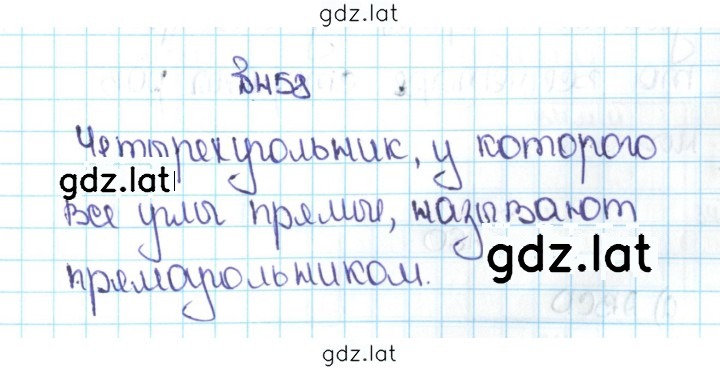 gdz.lat
В458
Четырехугольник, у которого
gdz.lat
все углы прямые, называют
gdz.lat
прямоугольником.
gdz.lat